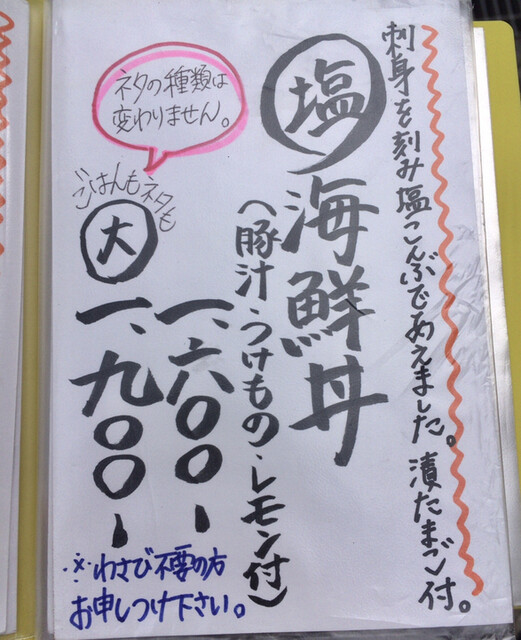 刺身を刻み塩こんぶであえました。漬たまご付。
塩海鮮丼
(豚汁・つけもの・レモン付)
一、六〇〇-
ネタの種類は
変わりません。
ごはんもネタも
大
一、九〇〇-
※わさび不要の方
お申しつけ下さい。